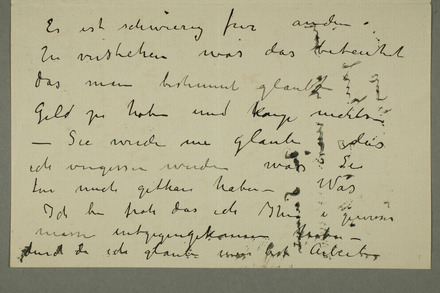 Es ist schwierig für andre
zu verstehen was das bedeutet
das man bestimmt glaubt
Geld zu haben und keines
— Sie werde nie glauben das
ich vergessen werden was Sie
für mich gethan haben — Was
Ich bin froh das ich Ihnen gewissen
massen entgegengekommen
und da ich glaube Arbeiten